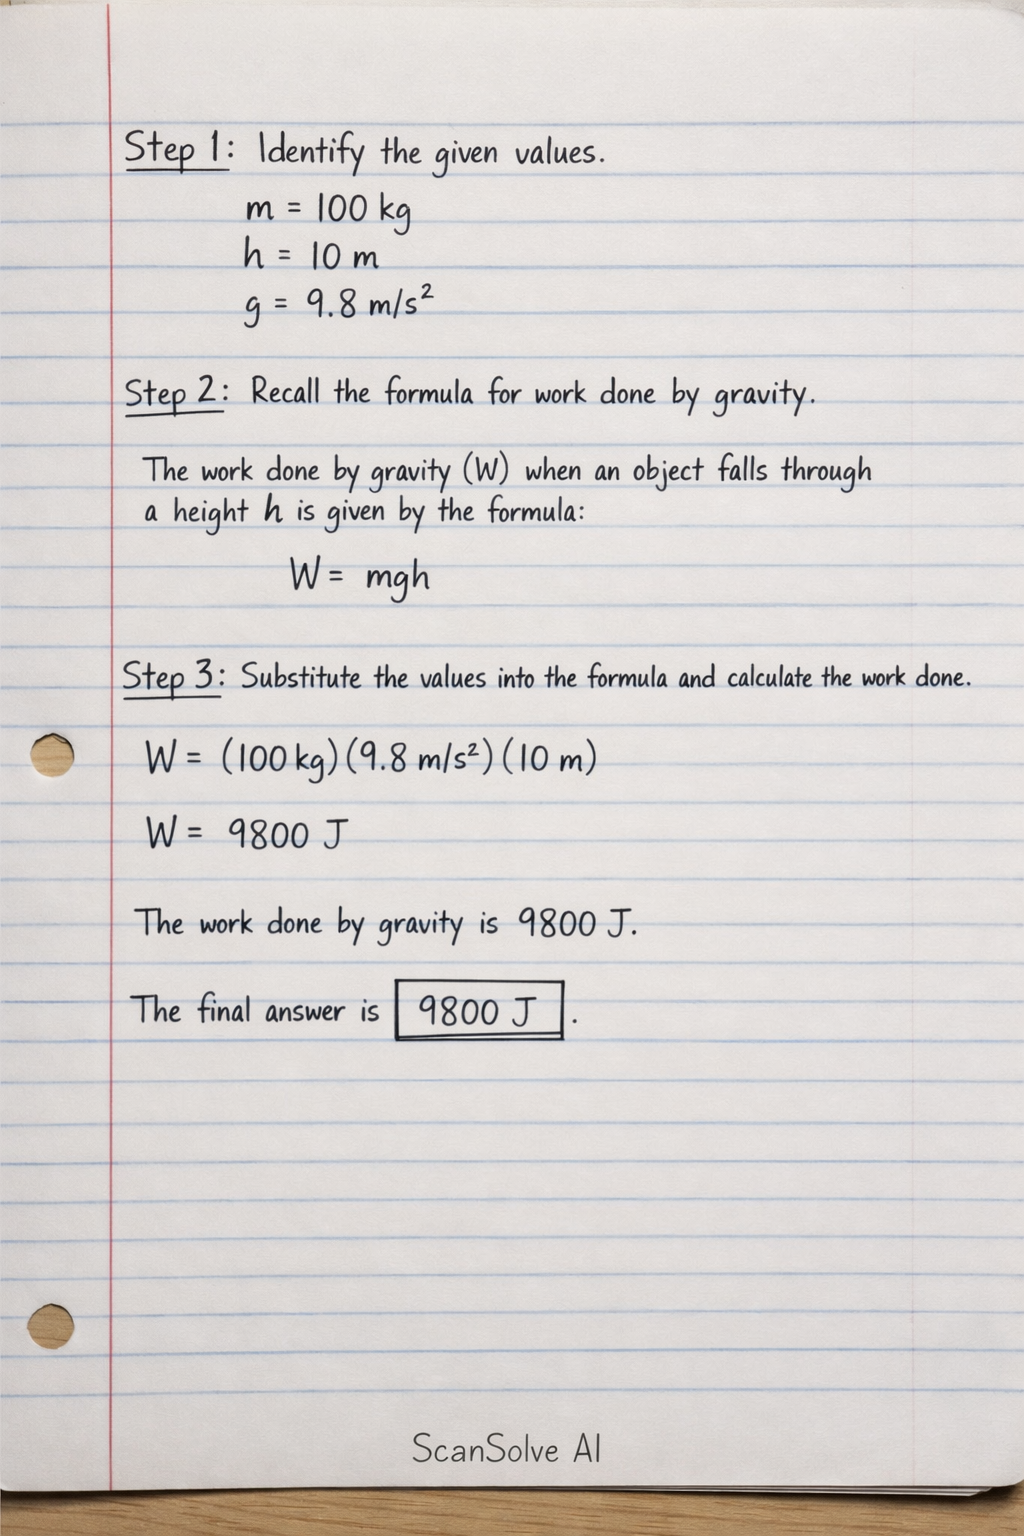 Step 1: Identify the given values.
m = 100 kg
h = 10 m
g = 9.8 m/s²
Step 2: Recall the formula for work done by gravity.
The work done by gravity (W) when an object falls through
a height h is given by the formula:
W = mgh
Step 3: Substitute the values into the formula and calculate the work done.
W = (100 kg)(9.8 m/s²)(10 m)
W = 9800 J
The work done by gravity is 9800 J.
The final answer is 9800 J.
ScanSolve AI